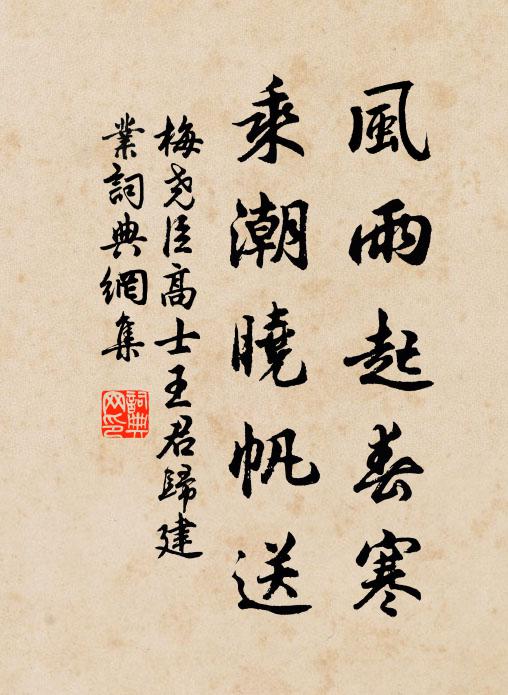 風雨起春寒
乘潮曉帆送
梅尧臣高士王君歸建
業詞典網集
詞典
网印